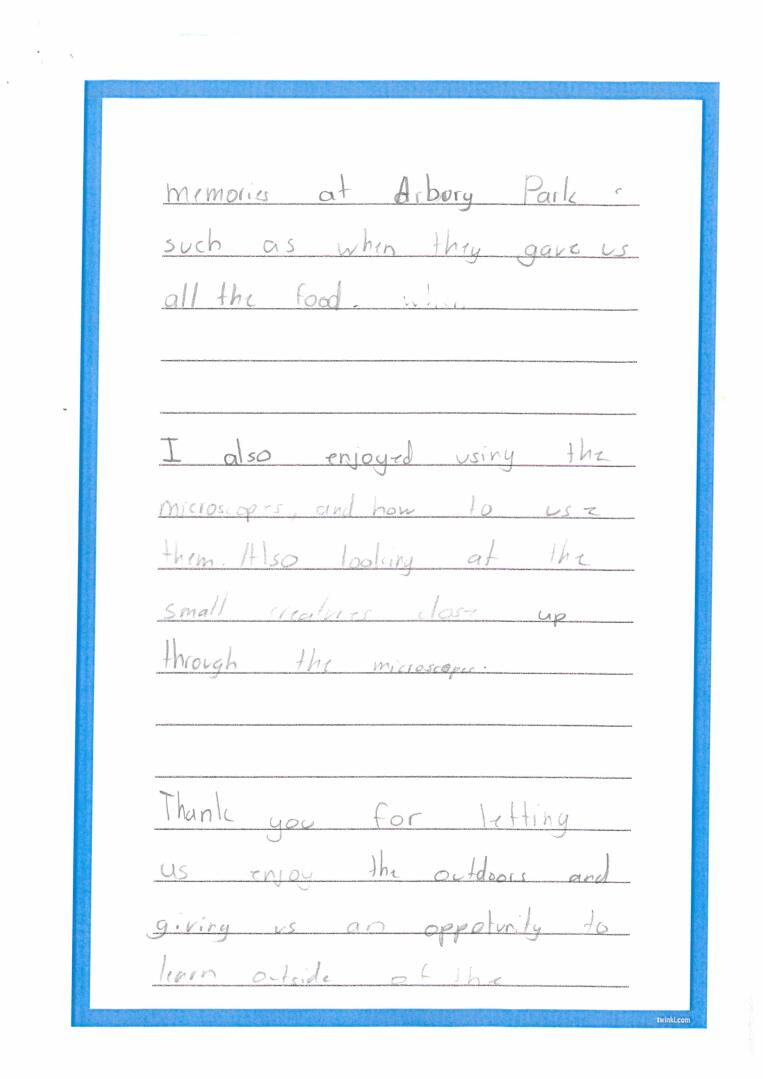 memories at Arbory Park
such as when they gave us
all the food.
I also enjoyed using the
microscopes, and how to use
them. Also looking at the
small creatures close up
through the microscope.
Thank you for letting
us enjoy the outdoors and
giving us an oppotunity to
learn outside of the
twinkl.com